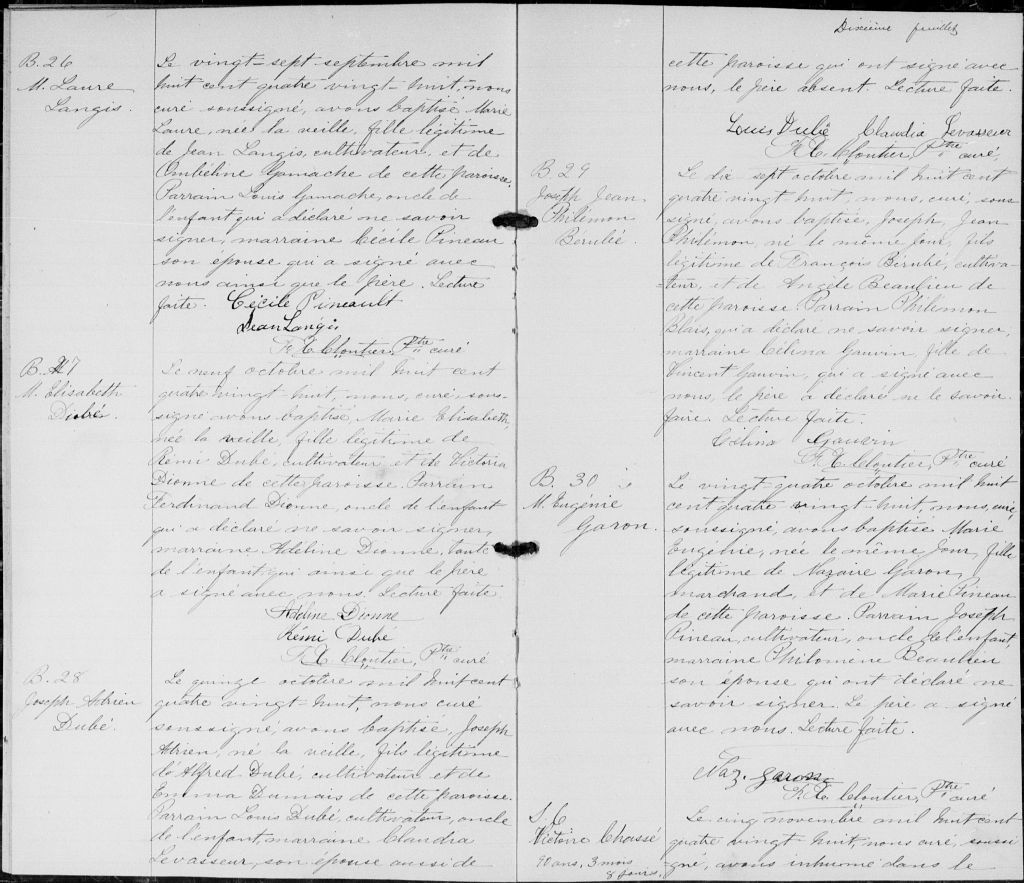 B. 26
M. Laure
Langis.
Le vingt-sept septembre mil
huit cent quatre vingt-huit, nous
curé soussigné, avons baptisé Marie
Laure, née la veille, fille légitime
de Jean Langis, cultivateur, et de
Ombéline Gamache de cette paroisse.
Parrain Louis Gamache, oncle de
l'enfant qui a déclaré ne savoir
signer, marraine Cécile Pineau
son épouse qui a signé avec
nous ainsi que le père. Lecture
faite Cécile Pineault
Jean Langis
F. X. Cloutier, Ptre curé
B. 27
M. Elisabeth
Dubé.
Le neuf octobre mil huit cent
quatre vingt-huit, nous, curé, sous-
signé avons baptisé Marie Elisabeth,
née la veille, fille légitime de
Rémi Dubé, cultivateur et de Victoria
Dionne de cette paroisse. Parrain
Ferdinand Dionne, oncle de l'enfant
qui a déclaré ne savoir signer,
marraine Adéline Dionne, tante
de l'enfant, qui ainsi que le père
a signé avec nous. Lecture faite.
Adéline Dionne
Rémi Dubé
F. X. Cloutier, Ptre curé
B. 28
Joseph Adrien
Dubé.
Le quinze octobre mil huit cent
quatre vingt-huit, nous curé
soussigné, avons baptisé, Joseph
Adrien, né la veille, fils légitime
d'Alfred Dubé, cultivateur et de
Emma Dumais de cette paroisse.
Parrain Louis Dubé, cultivateur, oncle
de l'enfant, marraine Claudia
Levasseur, son épouse aussi de
Dixième feuillet
cette paroisse qui ont signé avec
nous, le père absent. Lecture faite.
Louis Dubé Claudia Levasseur
F. X. Cloutier, Ptre curé,
B. 29
Joseph Jean
Philémon
Bérubé.
Le dix sept octobre mil huit cent
quatre vingt-huit, nous, curé, sous
signé, avons baptisé, Joseph, Jean
Philémon, né le même jour, fils
légitime de François Bérubé, cultiva-
teur, et de Angèle Beaulieu de
cette paroisse. Parrain Philémon
Blais, qui a déclaré ne savoir signer,
marraine Célina Gauvin, fille de
Vincent Gauvin, qui a signé avec
nous, le père a déclaré ne le savoir
faire. Lecture faite.
Célina Gauvin
F. X. Cloutier, Ptre curé
B. 30
M. Eugénie
Garon.
Le vingt-quatre octobre mil huit
cent quatre vingt-huit, nous, curé,
soussigné, avons baptisé Marie
Eugénie, née le même jour, fille
légitime de Nazaire Garon,
marchand, et de Marie Pineau
de cette paroisse. Parrain Joseph
Pineau, cultivateur, oncle de l'enfant,
marraine Philomène Beaulieu
son épouse qui ont déclaré ne
savoir signer. Le père a signé
avec nous. Lecture faite.
Naz. Garon
F. X. Cloutier, Ptre curé
S. 6
Victoire Chassé
90 ans, 3 mois
8 jours.
Le cinq novembre mil huit cent
quatre vingt huit, nous curé, soussi
gné, avons inhumé dans le